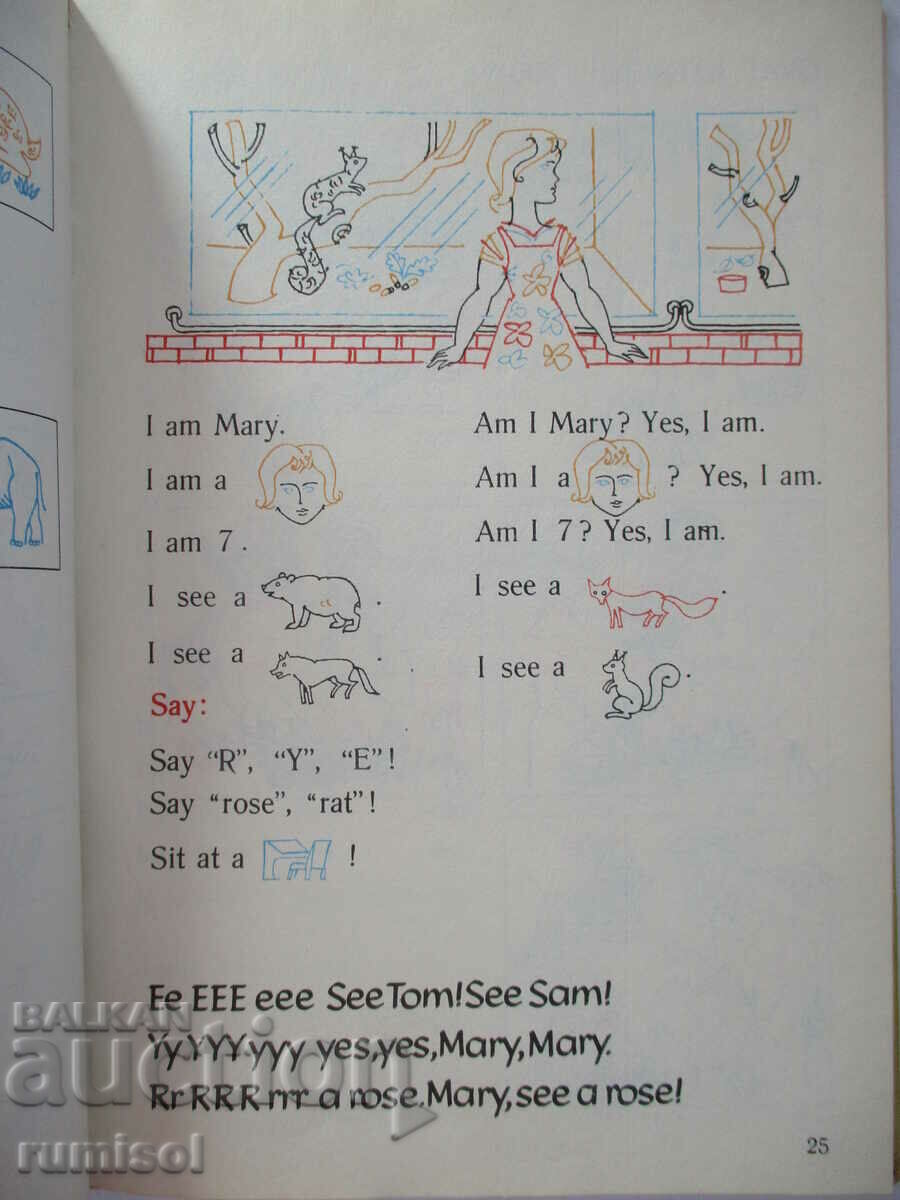 I am Mary.
I am a
I am 7.
I see a .
I see a .
Am I Mary? Yes, I am.
Am I a ? Yes, I am.
Am I 7? Yes, I am.
I see a .
I see a .
Say:
Say “R”, “Y”, “E”!
Say “rose”, “rat”!
Sit at a !
Ee EEE eee See Tom! See Sam!
Yy YYY yyy yes, yes, Mary, Mary.
Rr RRR rrr a rose. Mary, see a rose!
25
BALKAN
auction
rumisol